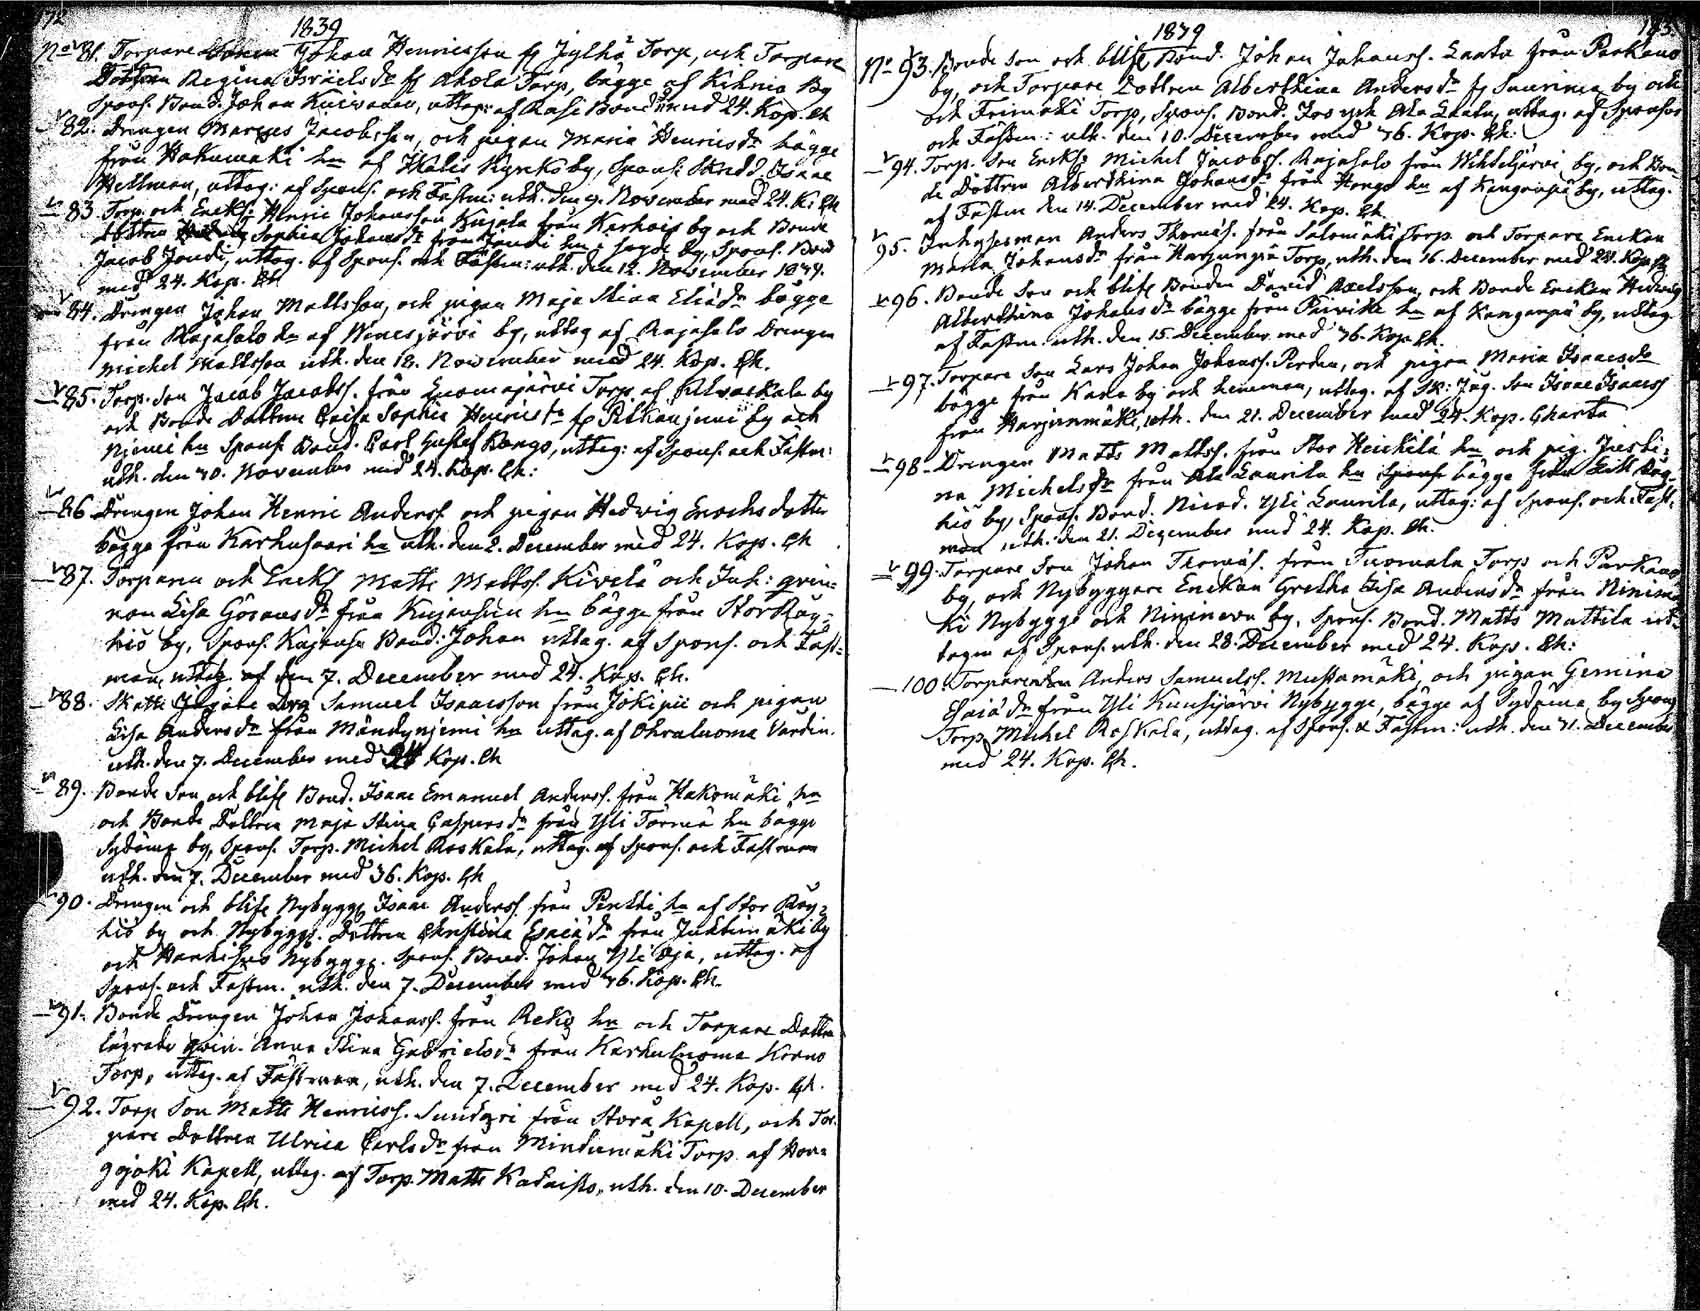 172
1839
No 81. Torpare Sonen Johan Henricsson fr Jylhä Torp, och Torpare
Dottren Regina Israels dr fr Ahola Torp, bägge af Kihniö By
Spons. Bond. Johan Kuivanen, uttag: af Rasi Bond med 24. Kop. Ch
82. Drengen Marcus Jacobsson, och pigan Maria Henrics dr bägge
från Hakomäki hn af Ikalis Kyrkoby, Spons: Skredd. Isaac
Hellman, uttag: af Spons. och Fästm: uth. den 9. November med 24. K: Ch
83. Torp. och Enckl: Henric Johansson Kujala från Karhois by och Bonde
Dottren Sophia Johans dr från Joudi hn i by, Spons. Bond
Jacob Joudi, uttag. af Spons. och Fästm: uth. den 12. November 1839.
med 24. Kop. Ch
84. Drengen Johan Mattsson, och pigan Maja Stina Eliæ dr bägge
från Rajasalo hn af Winesjärvi by, uttag af Rajasalo Drengen
Michel Mattsson uth. den 18. November med 24. Kop. Ch.
85. Torp. Son Jacob Jacobss. från Luomajärvi Torp af by
och Bonde Dottren Caisa Sophia Henrics dr fr by och
Niemi hn Spons. Bond. Carl Gustaf Kongo, uttag: af Spons. och Fästm:
uth. den 30. November med 24. Kop. Ch:
86 Drengen Johan Henric Anderss. och pigan Hedwig Enochs dotter
bägge från Karhusaari hn uth. den 2. December med 24. Kop. Ch
87. Torparen och Enckl Matts Mattss. Kivelä och Inh: qvin-
nan Lisa Görans dr från Kujansuu hn bägge från Stor Röy-
hiö by, Spons. Kujansu Bond: Johan uttag. af Spons. och Fäst-
man, uttag. af den 7. December med 24. Kop. Ch.
88. Skatti Hjelte Drg Samuel Isaacsson från Jokipii och pigan
Lisa Anders dr från Mändyniemi hn uttag. af Ohraluoma Värdin.
uth. den 7. December med 24 Kop. Ch
89. Bonde Son och blif. Bond. Isaac Emanuel Anderss. från Hakomäki hn
och Bonde Dottren Maja Stina Caspers dr från Yli Törmä hn bägge
Sydänm by, Spons. Torp. Michel Koskela, uttag. af Spons. och Fästman
uth. den 7. December med 36. Kop. Ch
90. Drengen och blif. Nybygg. Isaac Anderss. från Pentti hn af Stor Röy-
hiö by och Nybygg. Dottren Christina Esaiæ dr från by
och Nybygge. Spons. Bond. Johan Yli Oja, uttag. af
Spons. och Fästm. uth. den 7. December med 36. Kop. Ch.
91. Bonde Drengen Johan Johanss. från Reko hn och Torpare Dottren
lägrade qvin. Anna Stina Gabriels dr från Karhuluoma Krono
Torp, uttag. af Fästman, uth. den 7. December med 24. Kop. Ch.
92. Torp. Son Matts Henricss. Sundgri från Storå Kapell, och Tor-
pare Dottren Ulrica Carls dr från Mindumäki Torp. af Hon-
gojoki Kapell, uttag. af Torp. Matts Kadaisto, uth. den 10. December
med 24. Kop. Ch.
1839
173.
No 93. Bonde Son och blif. Bond. Johan Johanss. Laato från Parkano
by, och Torpare Dottren Alberthina Anders dr fr by och
och Frimäki Torp, Spons. Bond. Joseph Ala Laato, uttag. af Sponsor
och Fästm: uth. den 10. December med 36. Kop. Ch.
94. Torp. Son Enckl: Michel Jacobss. Rajasalo från by, och Bon
de Dottren Alberthina Johans dr från Hongo hn af Kangenpä by, uttag.
af Fästm den 14. December med 24. Kop. Ch.
95. Inhysesman Anders Thomæs. från Salomäki Torp och Torpare Enckan
Maria Johans dr från Harjunpä Torp, uth. den 16. December med 24. Kop. Ch
96. Bonde Son och blif. Bonden David Axelsson, och Bonde Enckan Hedwig
Alberthina Johans dr bägge från Päivike hn af Kangenpä by, uttag.
af Fästm. uth. den 15. December med 36. Kop. Ch.
97. Torpare Son Lars Johan Johanss. Perden, och pigan Maria Isaacs dr
bägge från Kara by och hemman, uttag. af Son Isaac Isaacss
från Harjunmäki, uth. den 21. December med 24. Kop. Charta
98. Drengen Matts Mattss. från Stor Heickilä hn och pig. Justi-
na Michels dr från Ala Laurila hn Spons bägge från Lill Röy-
hiö by, Spons. Bond. Nicod. Yli Laurila, uttag: af Spons. och Fäst-
man uth. den 21. December med 24. Kop. Ch.
99. Torpare Son Johan Thomæs. från Tuomala Torp och Parkano
by och Nybyggare Enckan Gretha Lisa Anders dr från Ninimä
ki Nybygge och Ninineva by, Spons. Bond. Matts Mattila ut-
tagen af Spons. uth. den 28. December med 24. Kop. Ch:
100. Torpare Son Anders Samuelss. Mustamäki, och pigan Gemina
Esaiæ dr från Yli Kuusijärvi Nybygge, bägge af Sydänm by Spons.
Torp. Michel Koskela, uttag. af Spons. & Fästm: uth. den 31. December
med 24. Kop. Ch.